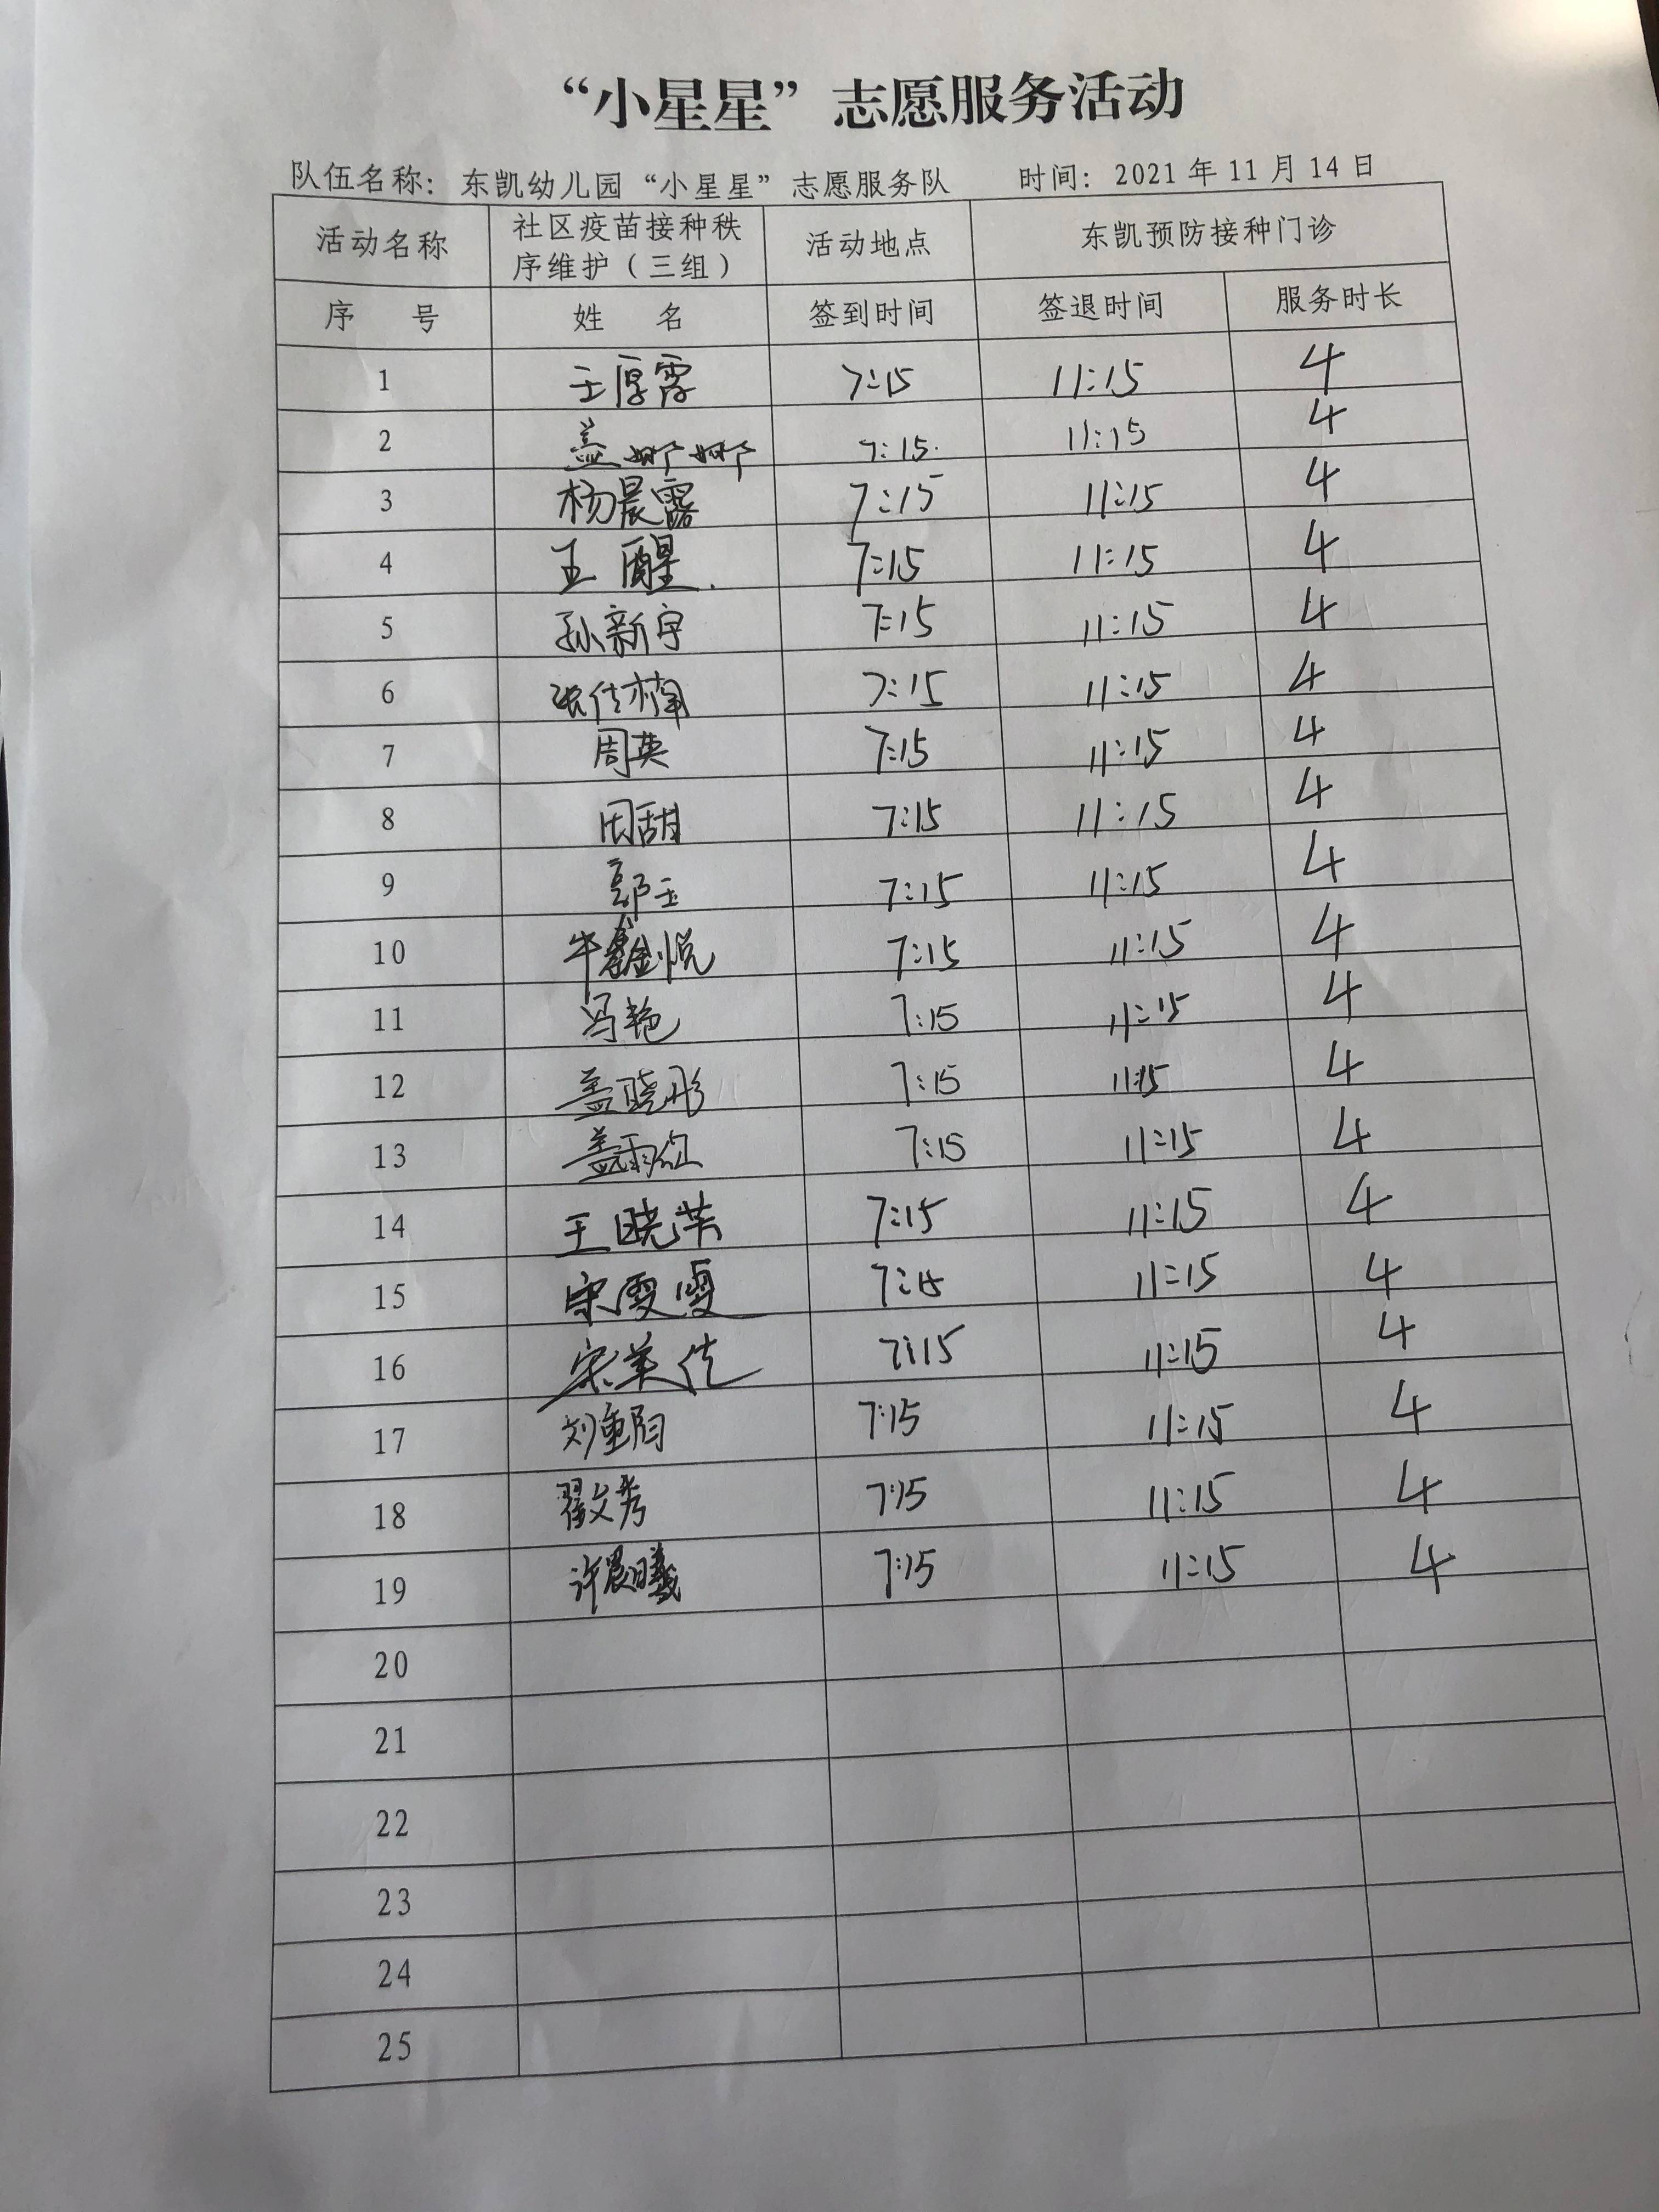 “小星星”志愿服务活动
队伍名称：东凯幼儿园“小星星”志愿服务队 时间：2021年11月14日
活动名称 社区疫苗接种秩序维护（三组） 活动地点 东凯预防接种门诊
序 号 姓 名 签到时间 签退时间 服务时长
1 王厚霄 7:15 11:15 4
2 盖娜娜 7:15 11:15 4
3 杨晨露 7:15 11:15 4
4 王醒 7:15 11:15 4
5 孙新宇 7:15 11:15 4
6 张佳楠 7:15 11:15 4
7 周英 7:15 11:15 4
8 周甜 7:15 11:15 4
9 郭玉 7:15 11:15 4
10 牛鑫悦 7:15 11:15 4
11 冯艳 7:15 11:15 4
12 盖晓彤 7:15 11:15 4
13 盖雨 7:15 11:15 4
14 王晓 7:15 11:15 4
15 宋雯雯 7:15 11:15 4
16 宋美佳 7:15 11:15 4
17 刘重阳 7:15 11:15 4
18 翟文秀 7:15 11:15 4
19 许晨曦 7:15 11:15 4
20
21
22
23
24
25